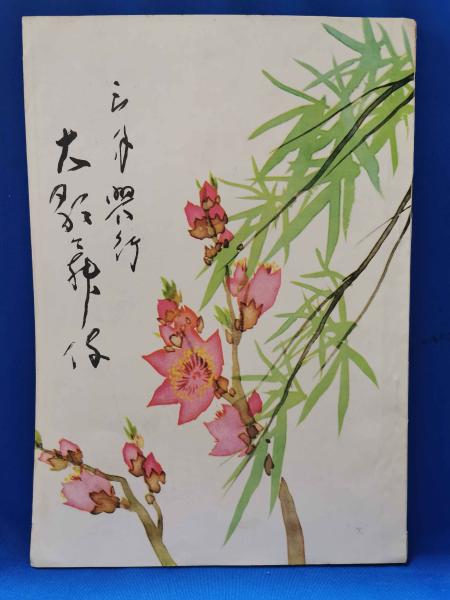 三月興行
大歌舞伎